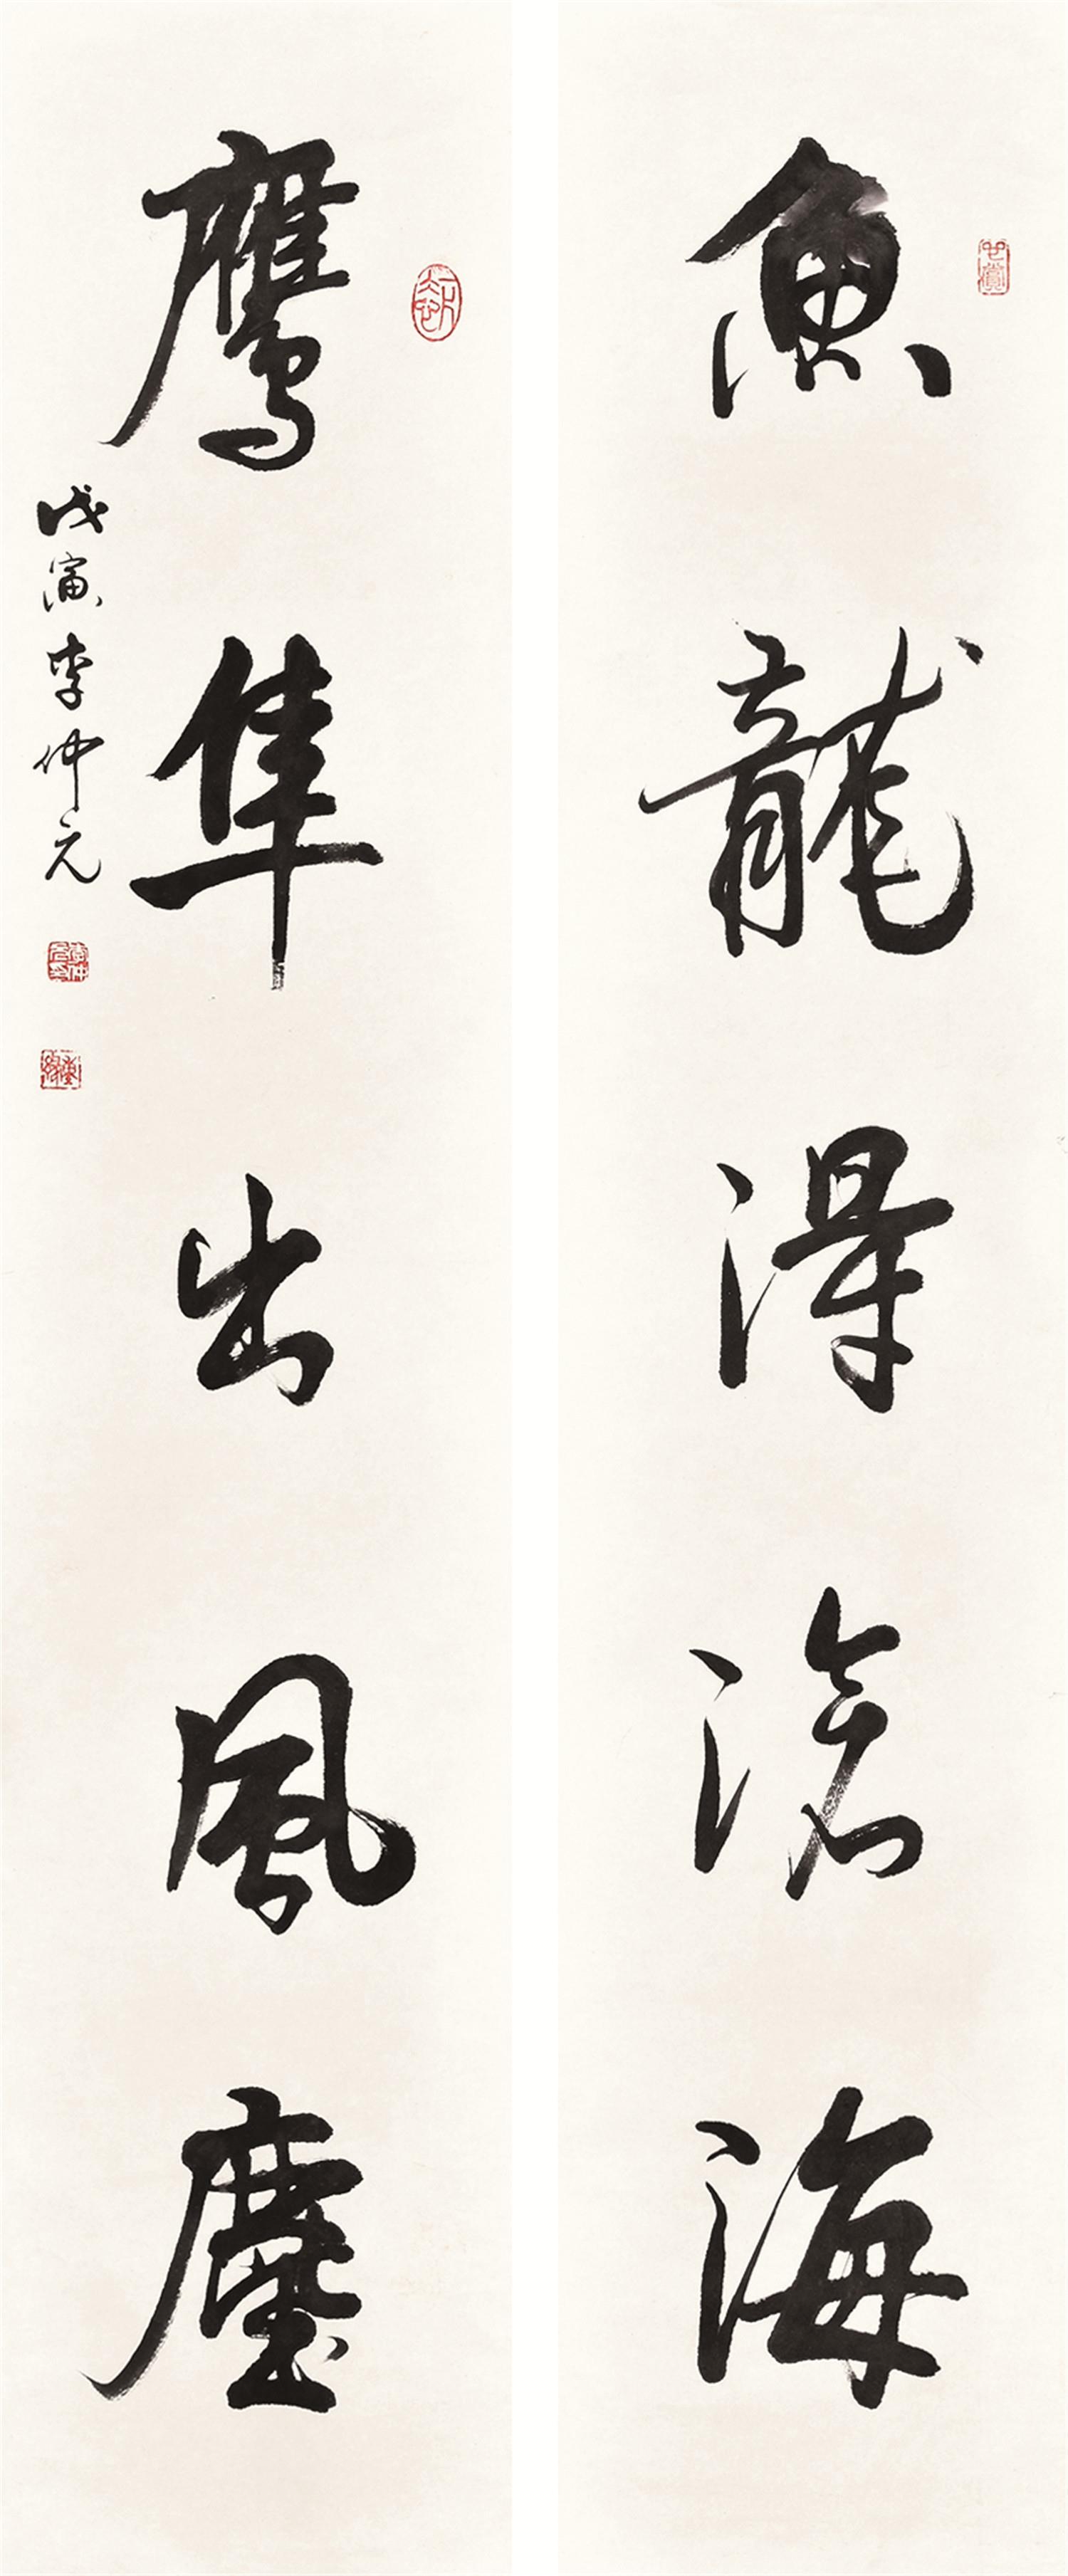 魚龍得滄海
鷹隼出風塵
戊寅李仲元